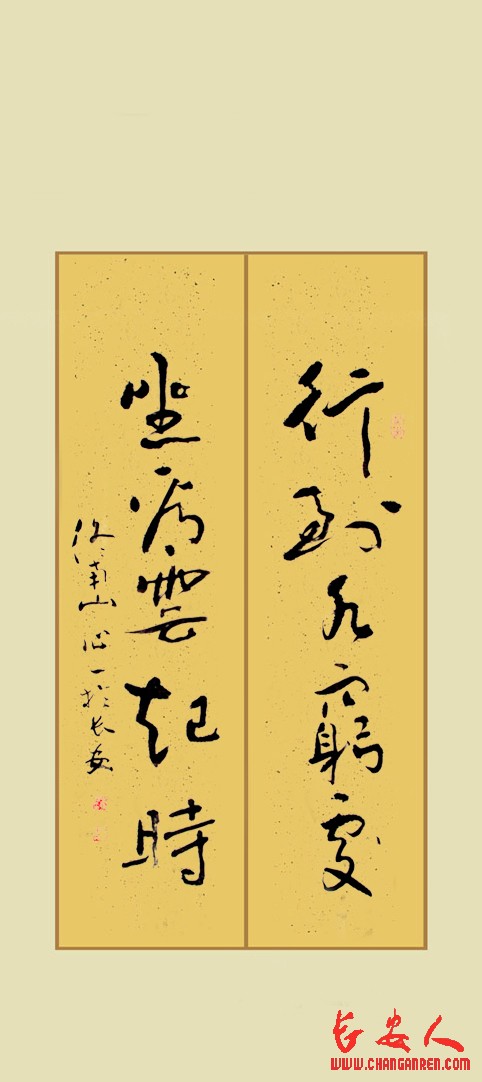 行到水窮處
坐看雲起時
終南山心一於長安
长安人
WWW.CHANGANREN.COM